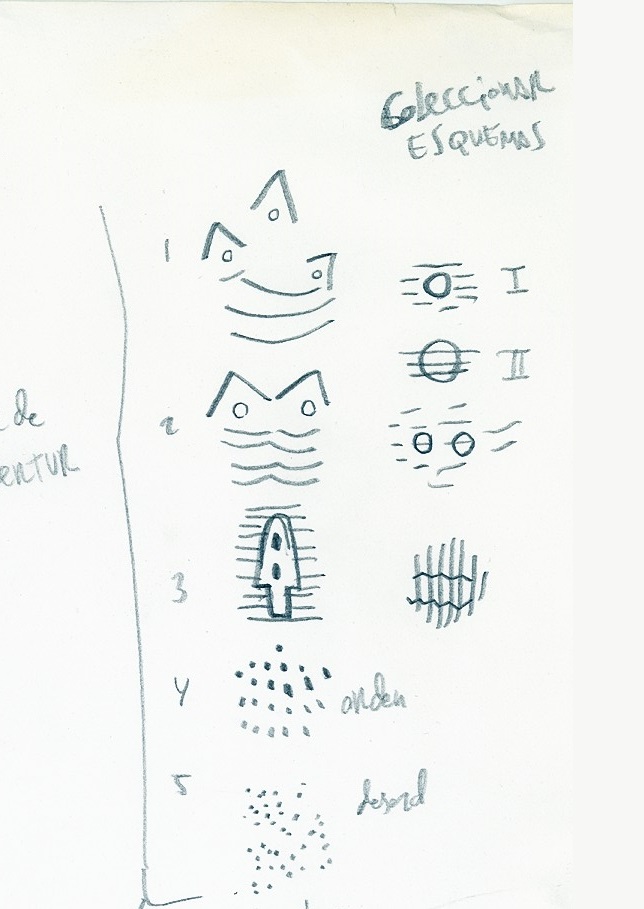 Coleccionar
ESQUEMAS
1
I
II
de
2
3
4
orden
5
desord